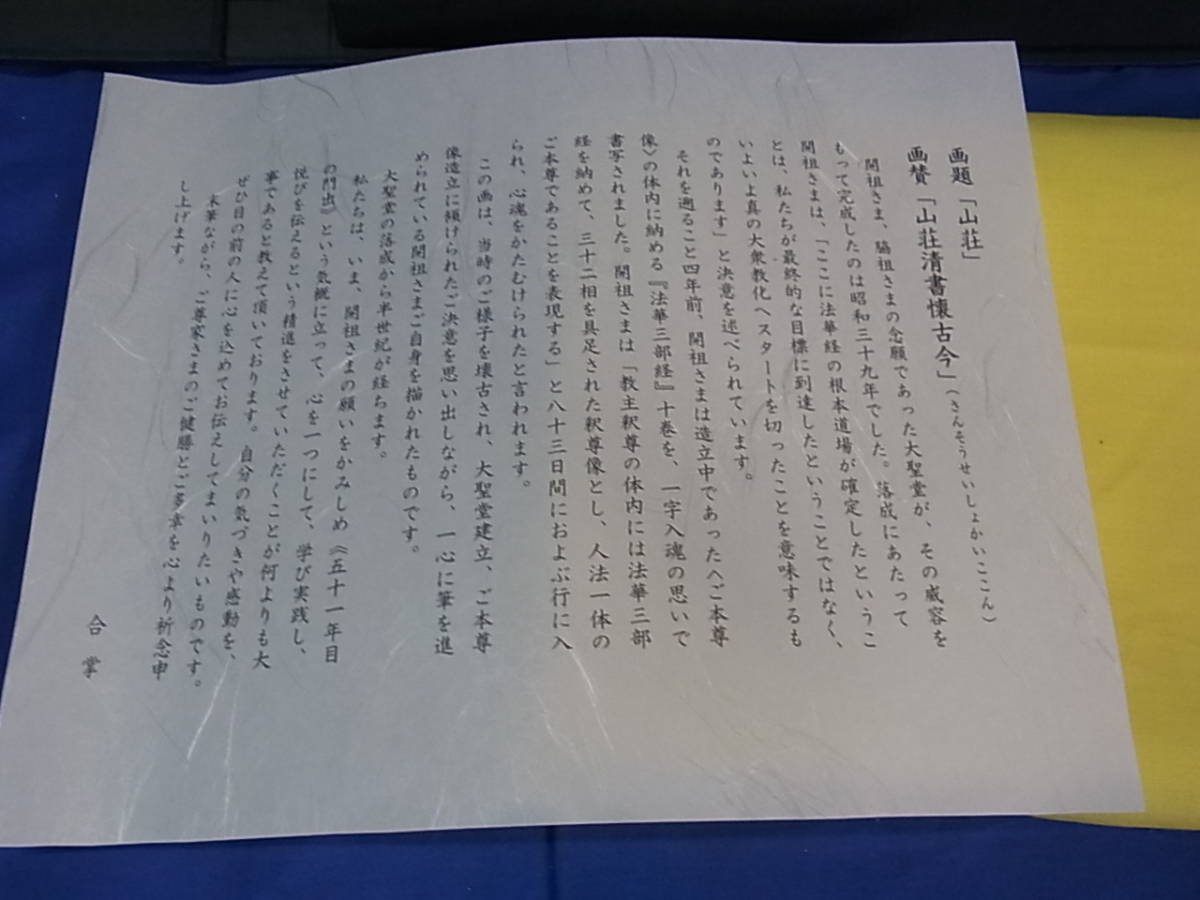 画題「山荘」
画賛「山荘清書懐古今」（さんそうせいしょかいここん）
開祖さま、脇祖さまの念願であった大聖堂が、その威容を
もって完成したのは昭和三十九年でした。落成にあたって
開祖さまは、「ここに法華経の根本道場が確定したというこ
とは、私たちが最終的な目標に到達したということではなく、
いよいよ真の大衆教化へスタートを切ったことを意味するも
のであります」と決意を述べられています。
それを遡ること四年前、開祖さまは造立中であった〈ご本尊
像〉の体内に納める『法華三部経』十巻を、一字入魂の思いで
書写されました。開祖さまは「教主釈尊の体内には法華三部
経を納めて、三十二相を具足された釈尊像とし、人法一体の
ご本尊であることを表現する」と八十三日間におよぶ行に入
られ、心魂をかたむけられたと言われます。
この画は、当時のご様子を懐古され、大聖堂建立、ご本尊
像造立に傾けられたご決意を思い出しながら、一心に筆を進
められている開祖さまご自身を描かれたものです。
大聖堂の落成から半世紀が経ちます。
私たちは、いま、開祖さまの願いをかみしめ《五十一年目
の門出》という気概に立って、心を一つにして、学び実践し、
悦びを伝えるという精進をさせていただくことが何よりも大
事であると教えて頂いております。自分の気づきや感動を、
ぜひ目の前の人に心を込めてお伝えしてまいりたいものです。
末筆ながら、ご尊家さまのご健勝とご多幸を心より祈念申
し上げます。
合掌